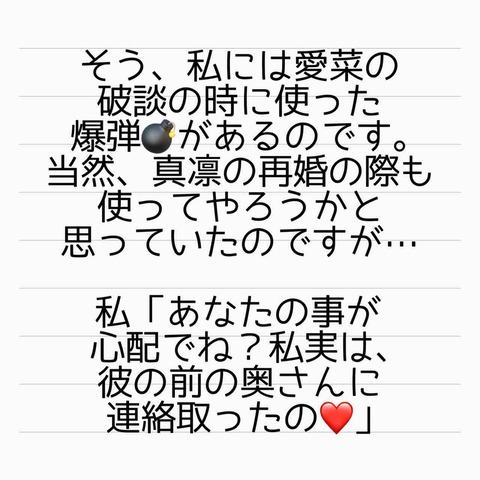 そう、私には愛菜の
破談の時に使った
爆弾💣があるのです。
当然、真凛の再婚の際も
使ってやろうかと
思っていたのですが…
私「あなたの事が
心配でね？私実は、
彼の前の奥さんに
連絡取ったの❤️」